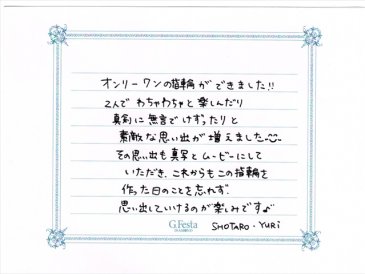 オンリーワンの指輪ができました!!
2人でわちゃわちゃと楽しんだり
真剣に無言でけずったりと
素敵な思い出が増えました
その思い出も真写とムービーにして
いただき、これからもこの指輪を
作った日のことを忘れず
思い出していけるのが楽しみです♪
G.Festa
SHOTARO・YURi